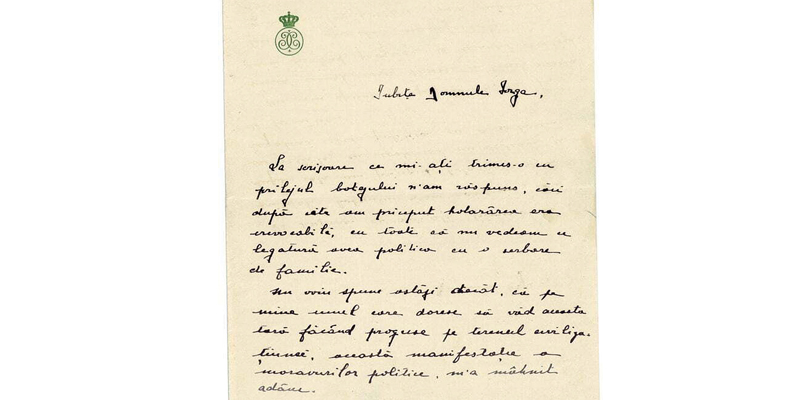 Iubite Domnule Iorga,
La scrisoare ce mi-ați trimes-o cu
prilejul botezului n'am răspuns, căci
după câte am priceput hotarârea era
irevocabilă, cu toate că nu vedeam ce
legatură avea politica cu o serbare
de familie.
Nu voiu spune astăzi decât, că pe
mine unul care doresc să văd aceasta
tară făcând progrese pe terenul civiliza-
tiunei, această manifestație a
moravurilor politice, m'a mâhnit
adânc.